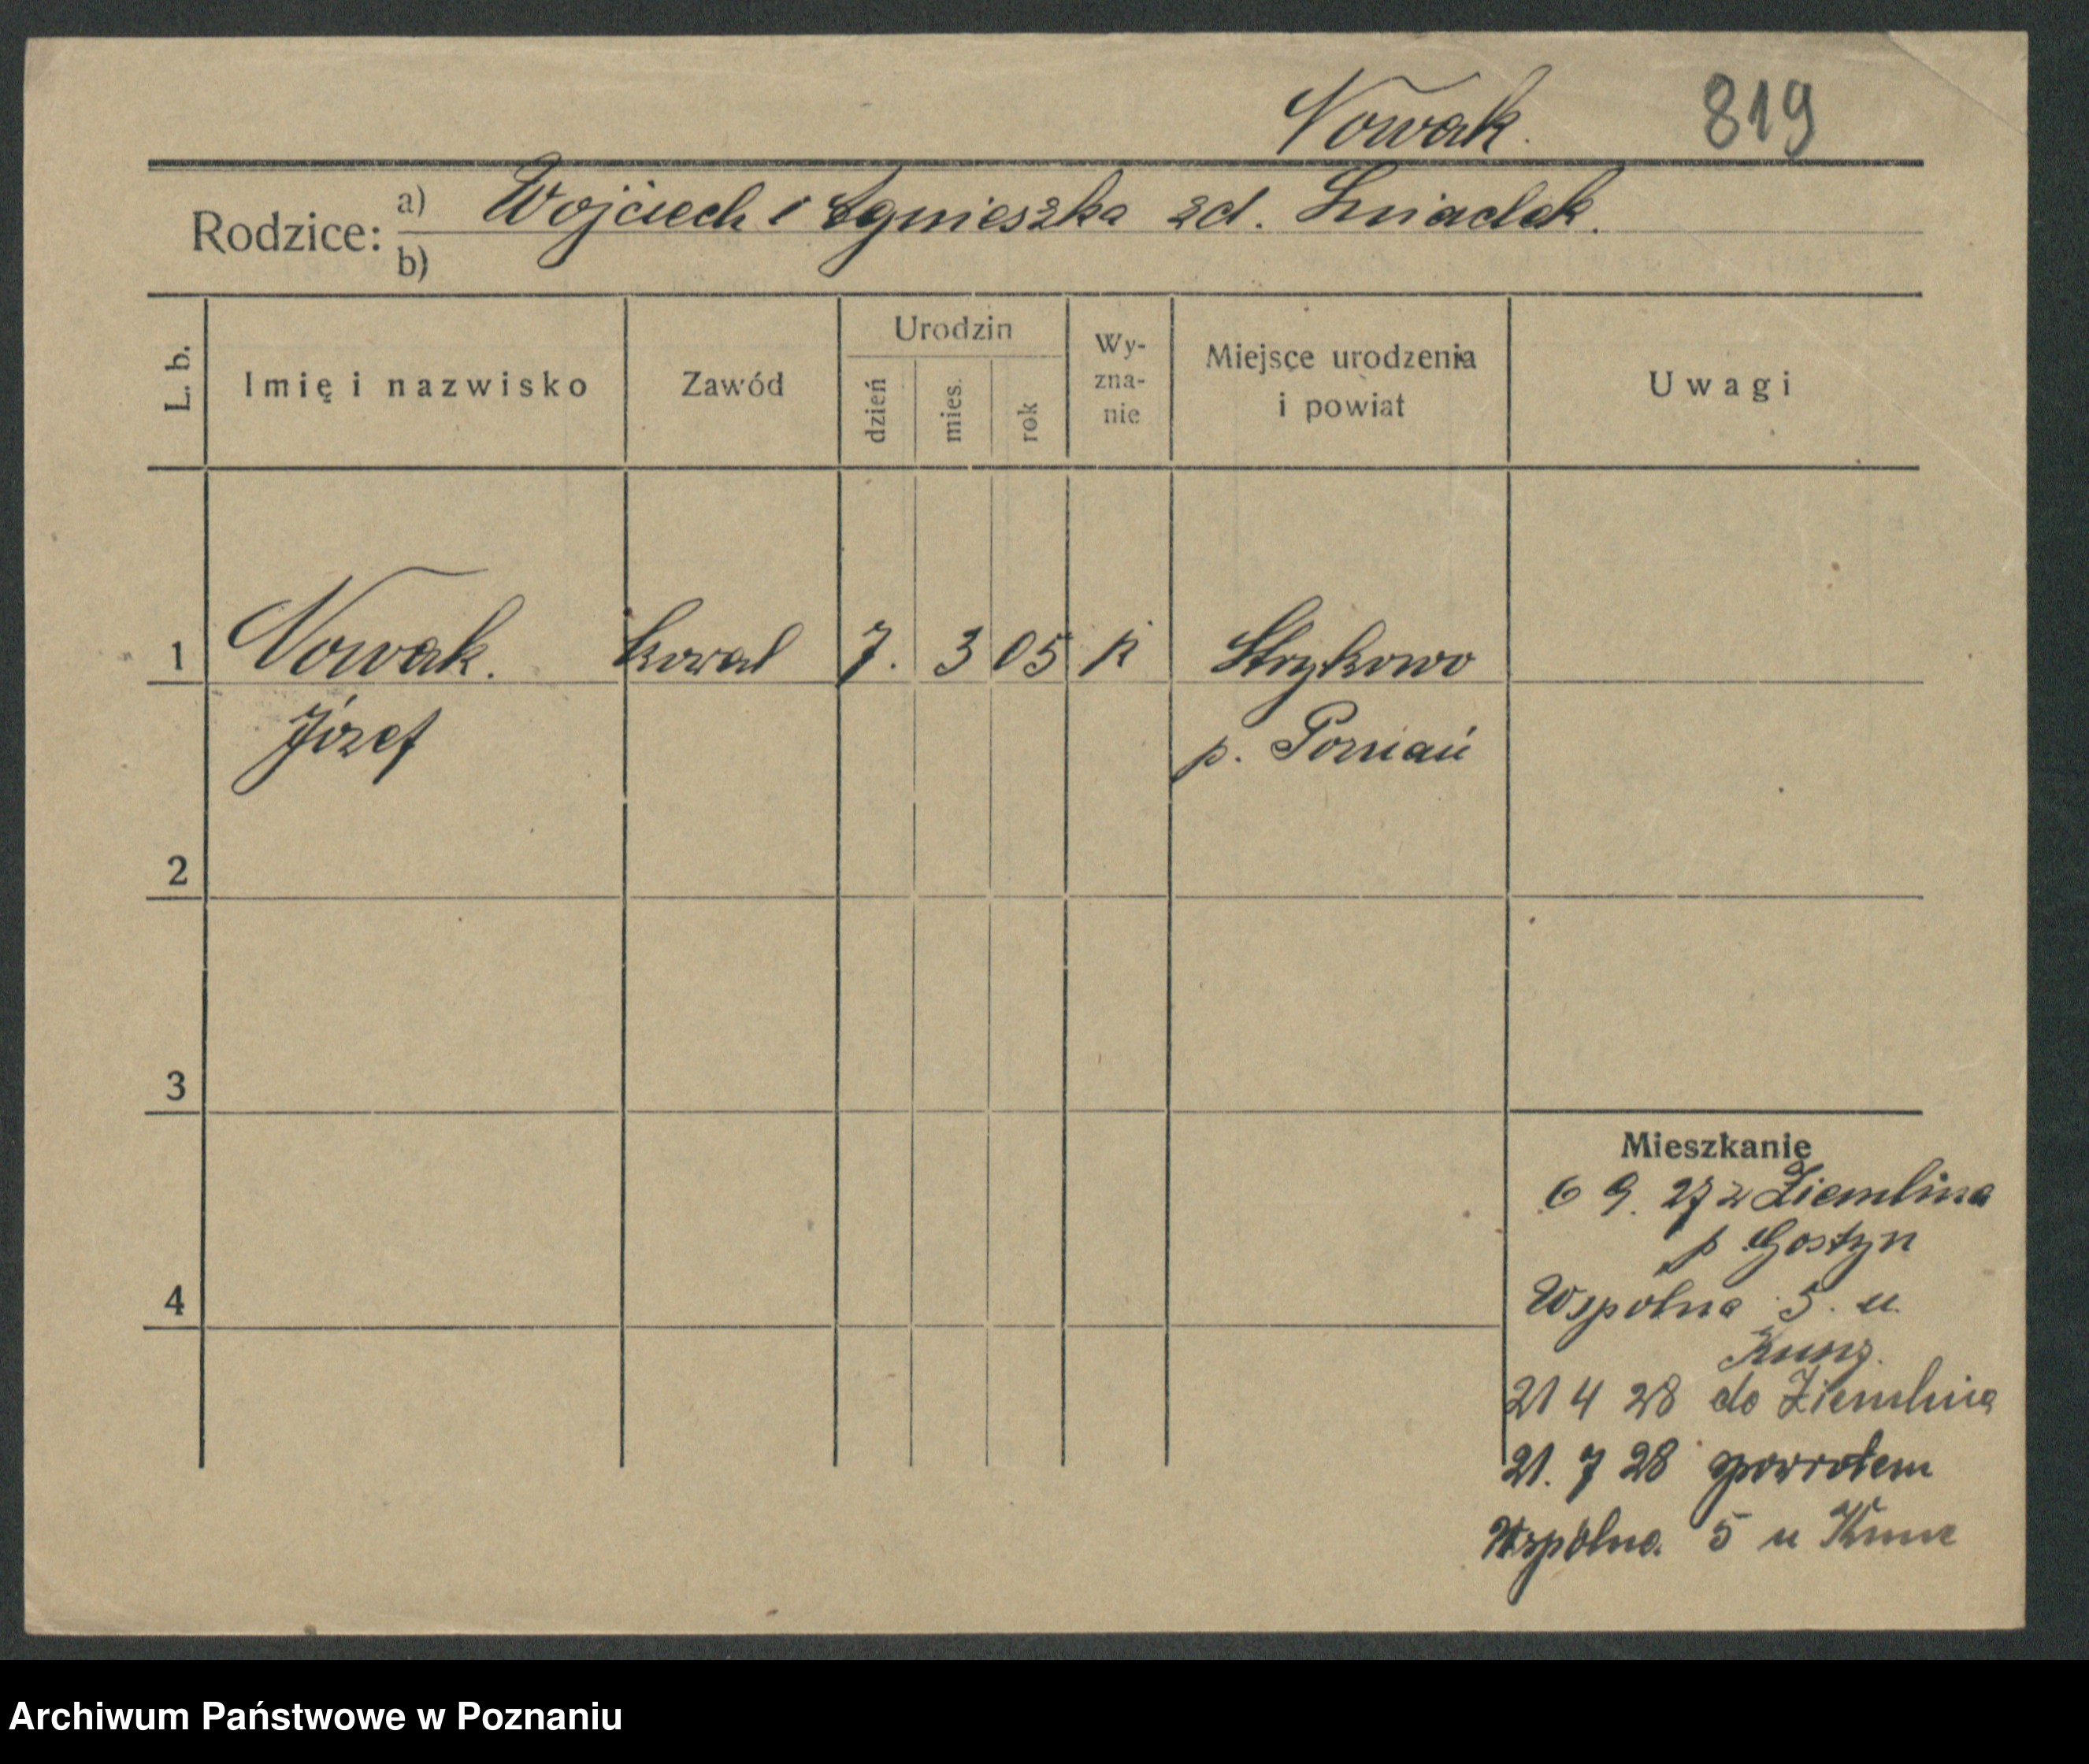 Nowak. 819
Rodzice: a) Wojciech i Agnieszka zd. Śniadek.
b)
L. b. Imię i nazwisko Zawód Urodzin dzień mies. rok Wy-zna-nie Miejsce urodzenia i powiat Uwagi
1 Nowak. kowal 7. 3 05 k Strykowo
Józef p. Poznań
2
3
Mieszkanie
6 9. 27 z Ziemlina
p Gostyn
4
Wspólna 5. u.
21 4 28 do Ziemlina
21. 7 28 spowrotem
Wspólna 5 u
Archiwum Państwowe w Poznaniu